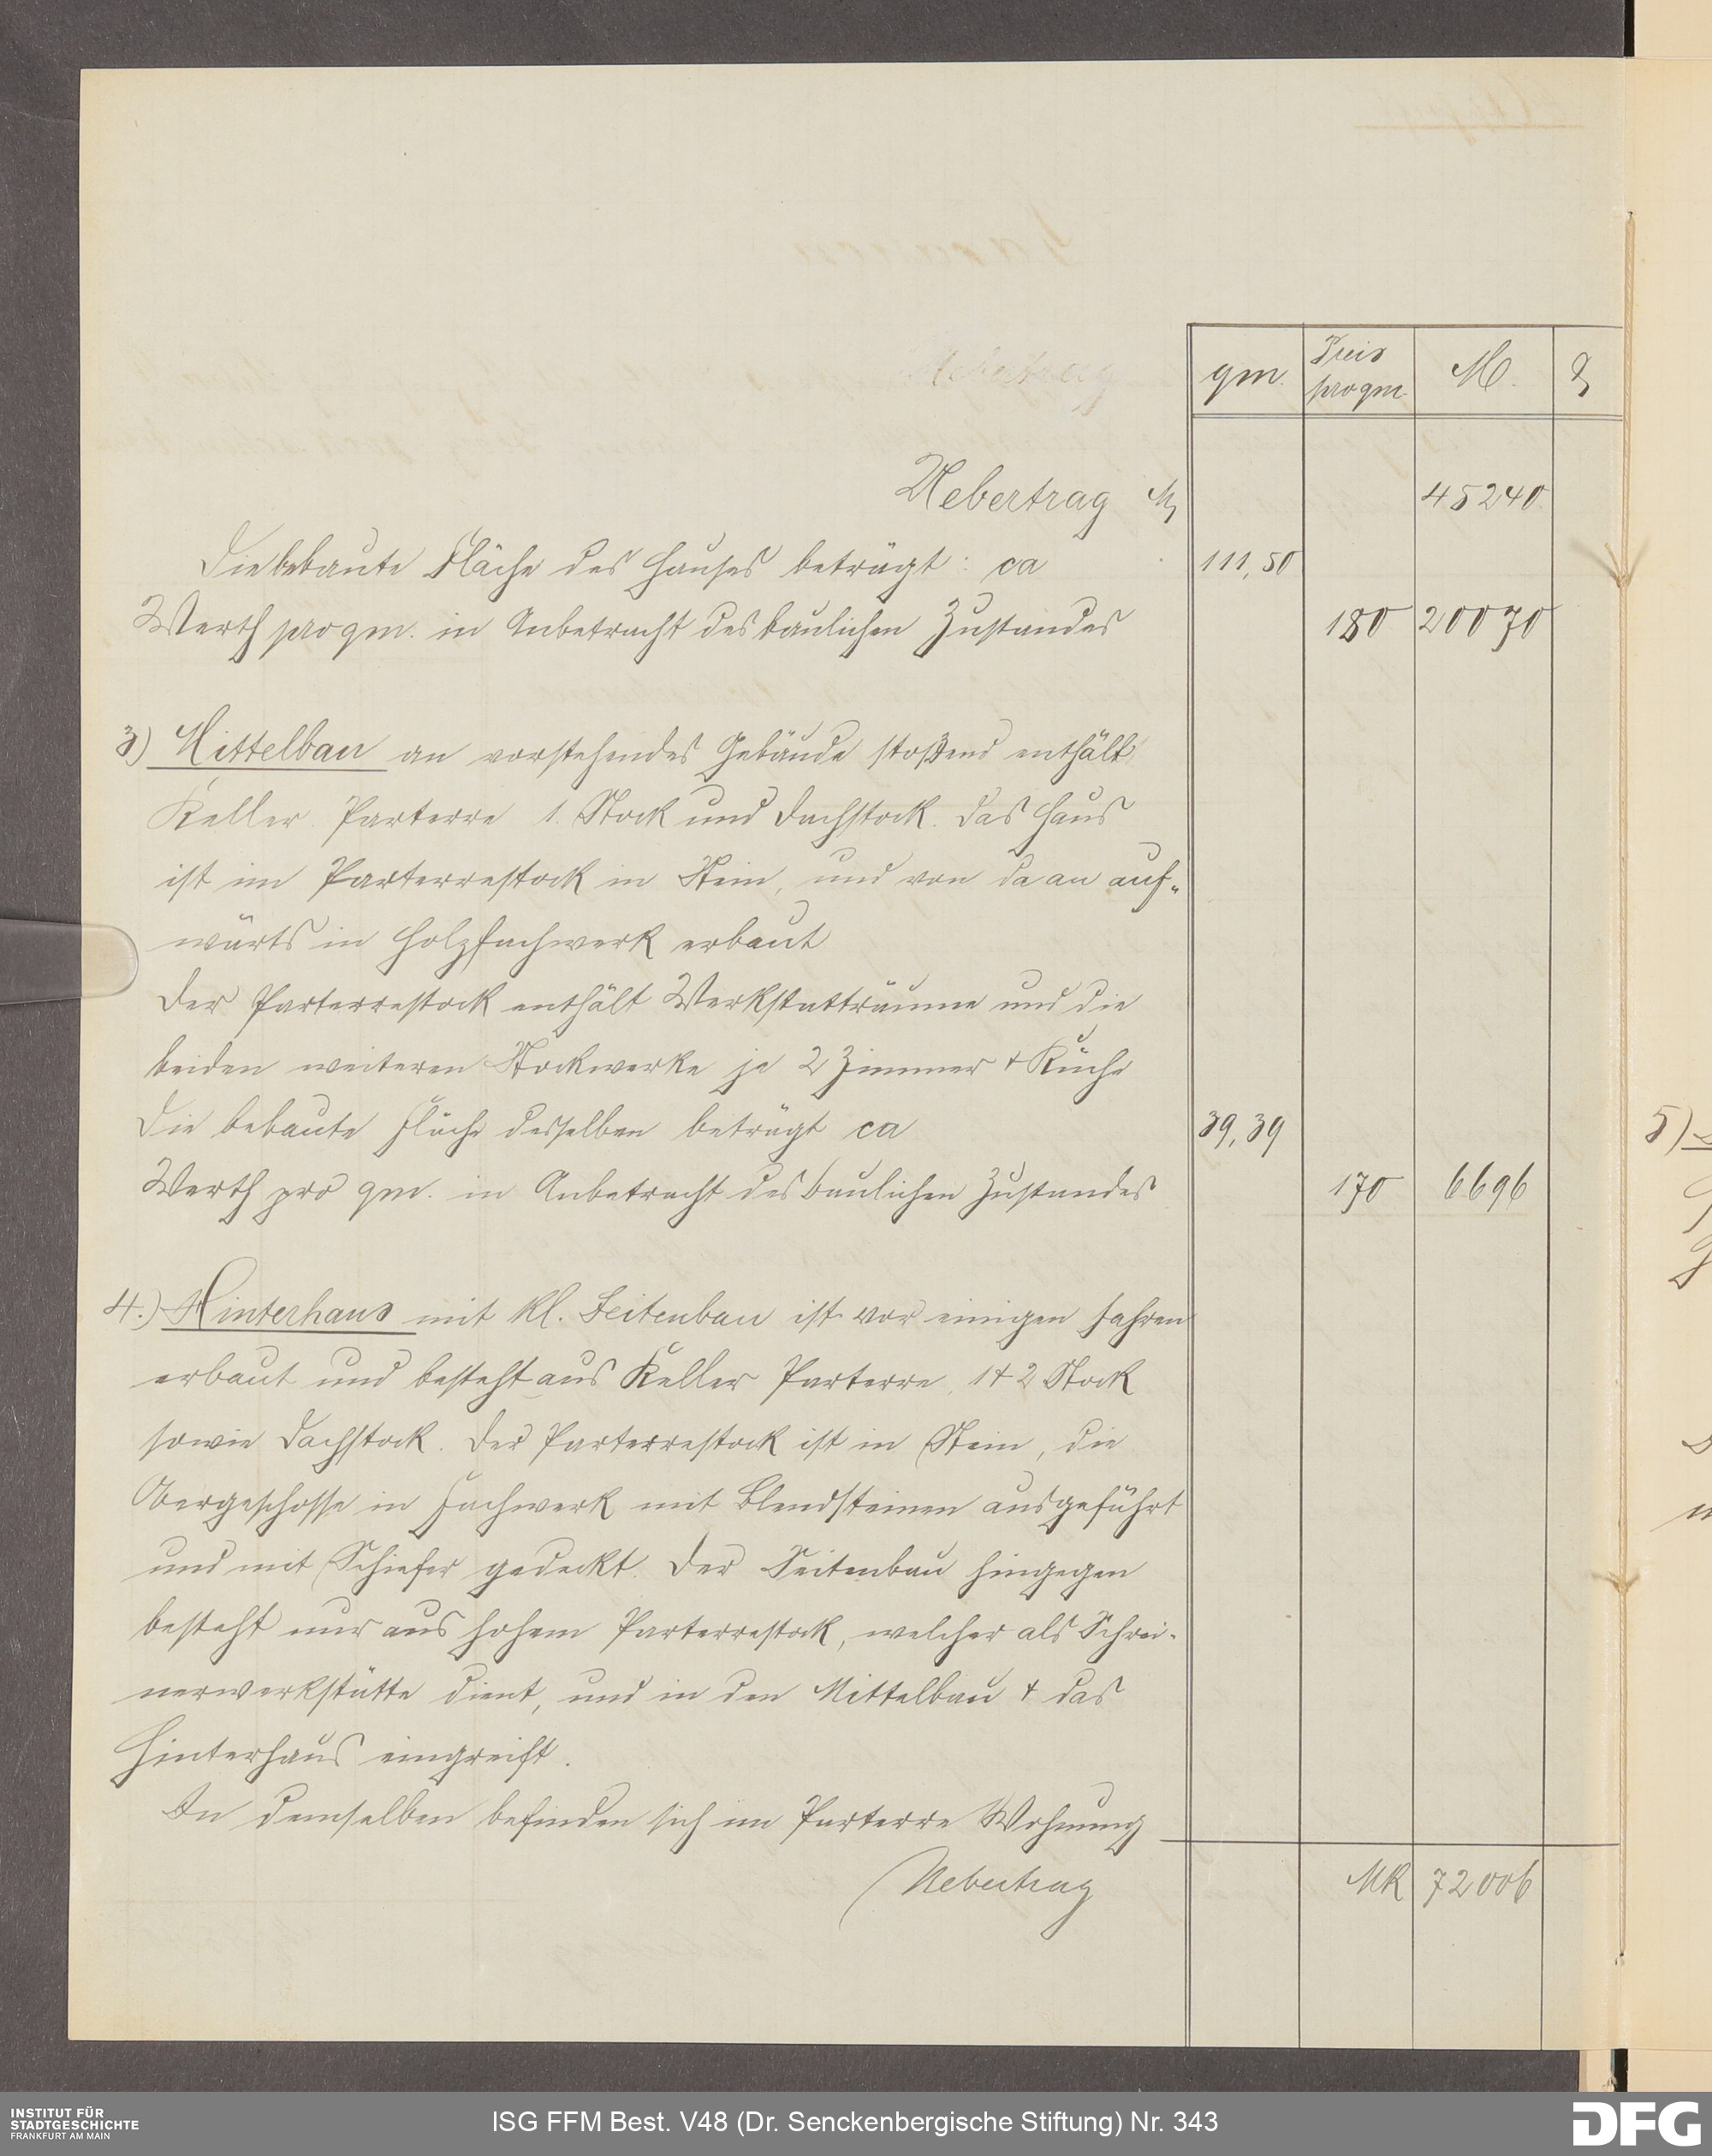 qm. Preis pro qm. M. ₰
Uebertrag M 45240
Die bebaute Fläche des Hauses beträgt: ca 111,50
Werth pro qm. in Anbetracht des baulichen Zustandes 180 20070
3) Mittelbau an vorstehendes Gebäude stoßend enthält
Keller. Parterre 1. Stock und Dachstock. Das Haus
ist im Parterrestock in Stein, und von da an auf-
wärts in Holzfachwerk erbaut
Der Parterrestock enthält Werkstatträume und die
beiden weiteren Stockwerke je 2 Zimmer & Küche
Die bebaute Fläche desselben beträgt ca 39,39
Werth pro qm. in Anbetracht des baulichen Zustandes 170 6696
4.) Hinterhaus mit kl. Seitenbau ist vor einigen Jahren
erbaut und besteht aus Keller Parterre, 1 & 2 Stock
sowie Dachstock. Der Parterrestock ist in Stein, die
Obergeschosse in Fachwerk mit Blendsteinen ausgeführt
und mit Schiefer gedeckt. Der Seitenbau hingegen
besteht nur aus hohem Parterrestock, welcher als Schrei-
nerwerkstätte dient, und in den Mittelbau & das
Hinterhaus eingreift.
In demselben befinden sich im Parterre Wohnung
Uebertrag MK 72006
5)
INSTITUT FÜR
STADTGESCHICHTE
FRANKFURT AM MAIN
ISG FFM Best. V48 (Dr. Senckenbergische Stiftung) Nr. 343
DFG